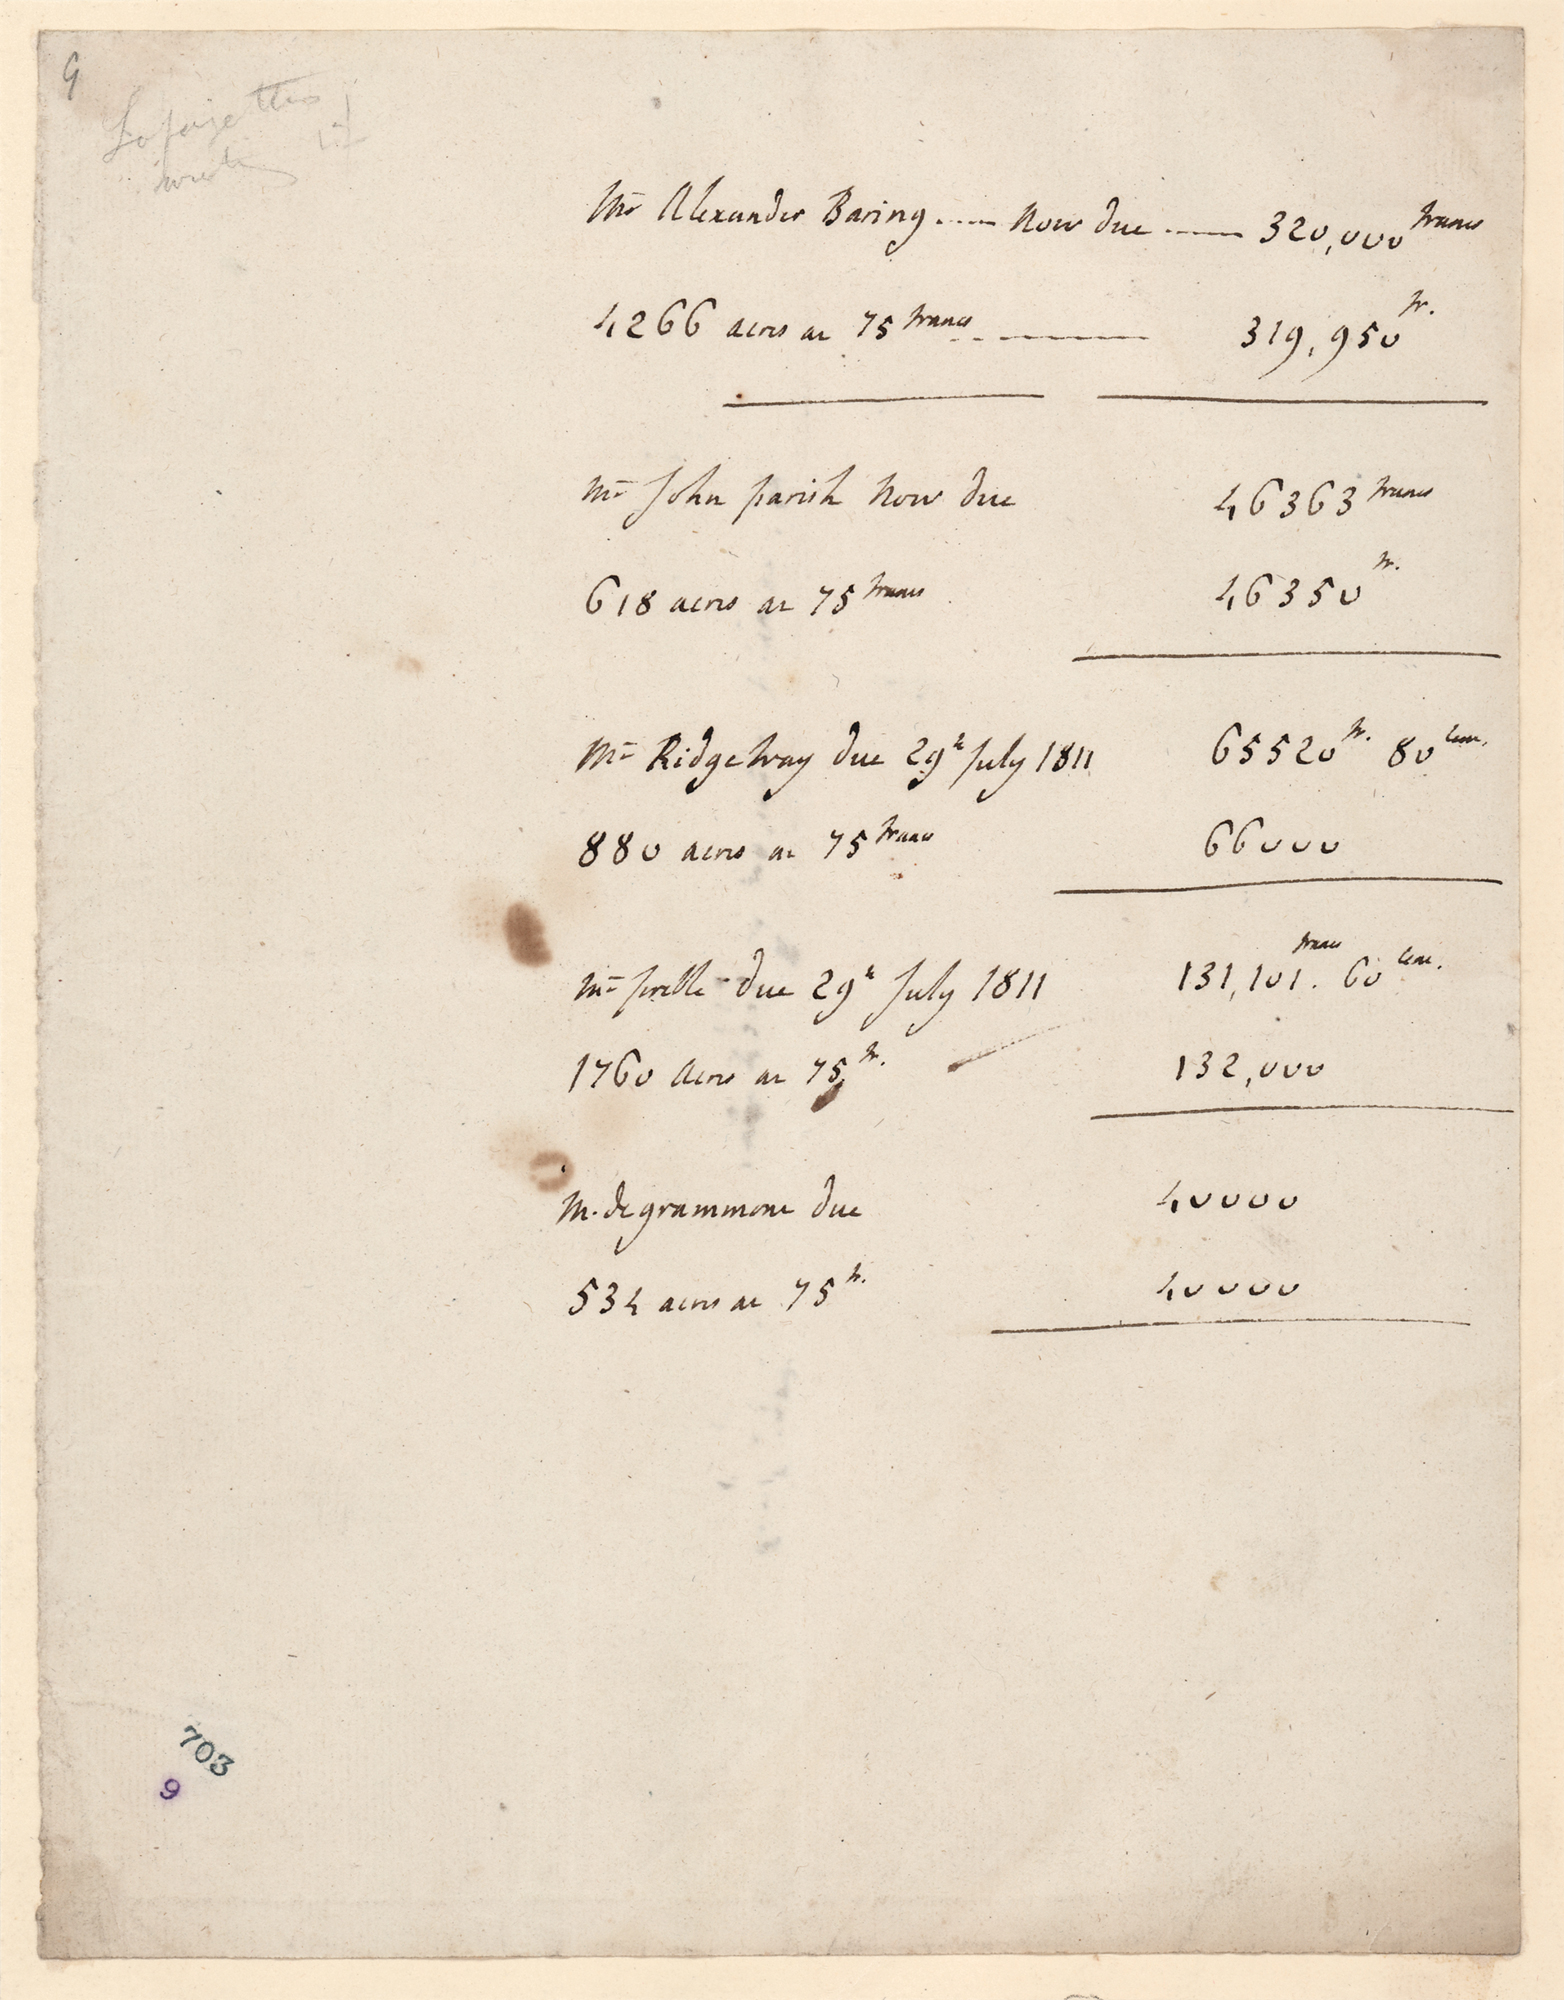 9
Lafayettes
Mr Alexander Baring .... Now due ---- 320,000 francs
4266 acres at 75 francs ---- 319,950 fr.
Mr John parish Now due 46363 francs
618 acres at 75 francs 46350 fr.
Mr Ridgeway due 29h July 1811 65520 fr. 80 Cent.
880 acres at 75 francs 66000
Mr due 29h July 1811 131,101. francs 60 Cent.
1760 Acres at 75 fr. 132,000
M. de grammont due 40000
534 acres at 75 fr. 40000
703
9